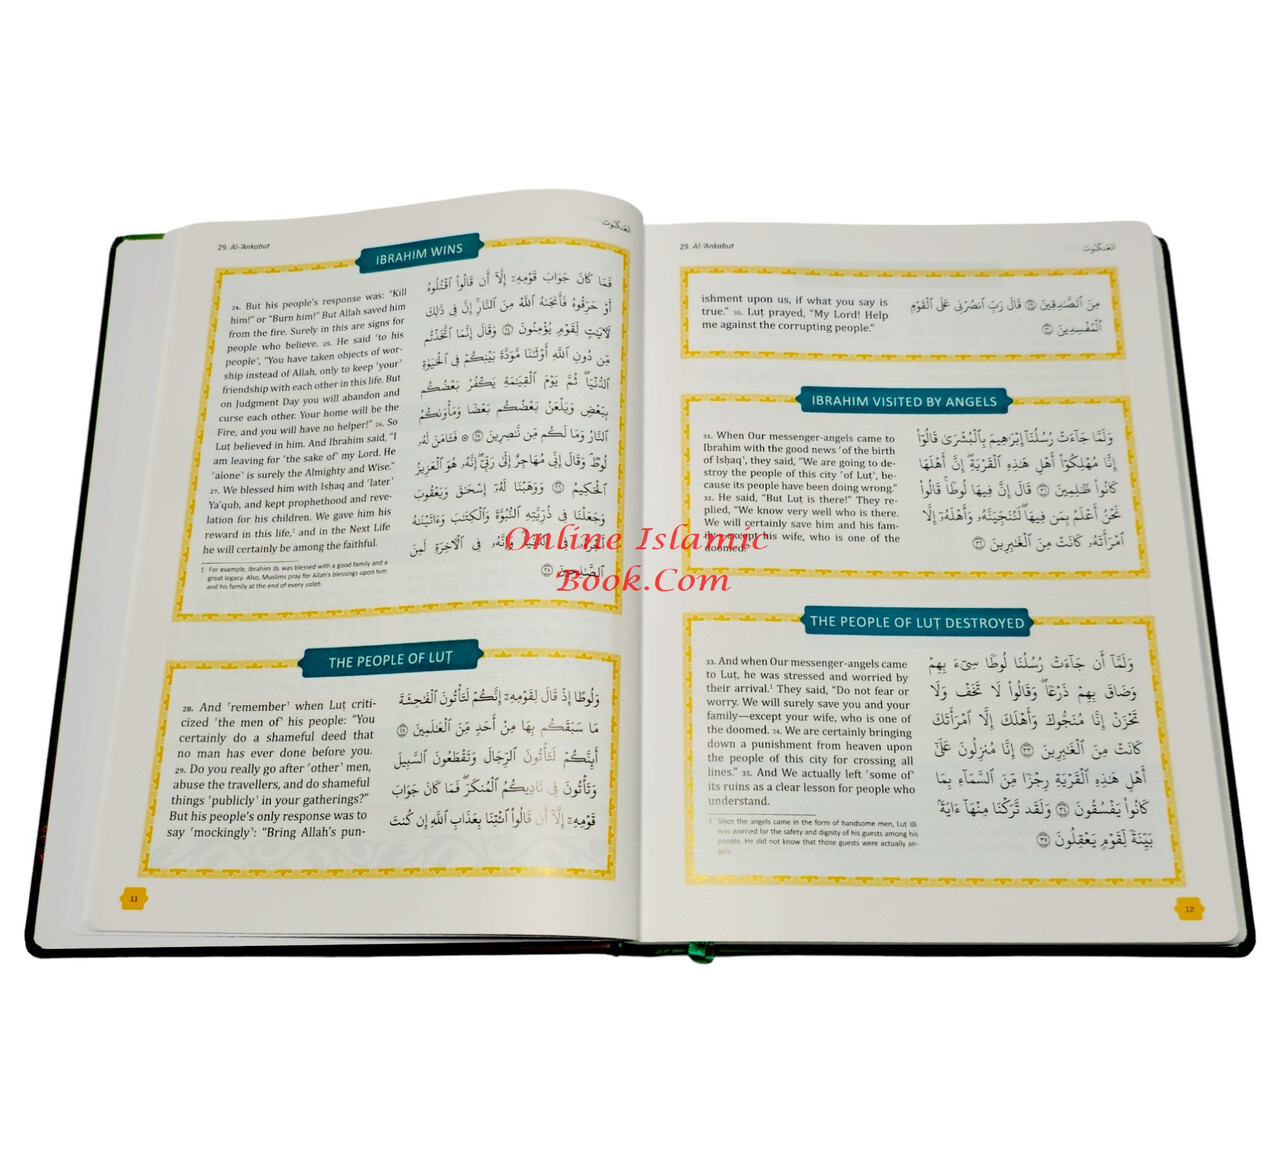 29. Al-'Ankabut
العنكبوت
IBRAHIM WINS
24. But his people's response was: "Kill
him!" or "Burn him!" But Allah saved him
from the fire. Surely in this are signs for
people who believe. 25. He said ˹to his
people˺, "You have taken objects of wor-
ship instead of Allah, only to keep ˹your˺
friendship with each other in this life. But
on Judgment Day you will abandon and
curse each other. Your home will be the
Fire, and you will have no helper!" 26. So
Luṭ believed in him. And Ibrahim said, "I
am leaving for ˹the sake of˺ my Lord. He
˹alone˺ is surely the Almighty and Wise."
27. We blessed him with Isḥaq and ˹later˺
Ya'qub, and kept prophethood and reve-
lation for his children. We gave him his
reward in this life,¹ and in the Next Life
he will certainly be among the faithful.
1 For example, Ibrahim ﷺ was blessed with a good family and a
great legacy. Also, Muslims pray for Allah's blessings upon him
and his family at the end of every ṣalah.
فَمَا كَانَ جَوَابَ قَوْمِهِۦٓ إِلَّآ أَن قَالُوا۟ ٱقْتُلُوهُ
أَوْ حَرِّقُوهُ فَأَنجَىٰهُ ٱللَّهُ مِنَ ٱلنَّارِ ۚ إِنَّ فِى ذَٰلِكَ
لَـَٔايَـٰتٍ لِّقَوْمٍ يُؤْمِنُونَ ٢٤ وَقَالَ إِنَّمَا ٱتَّخَذْتُم
مِّن دُونِ ٱللَّهِ أَوْثَـٰنًا مَّوَدَّةَ بَيْنِكُمْ فِى ٱلْحَيَوٰةِ
ٱلدُّنْيَا ۖ ثُمَّ يَوْمَ ٱلْقِيَـٰمَةِ يَكْفُرُ بَعْضُكُم
بِبَعْضٍ وَيَلْعَنُ بَعْضُكُم بَعْضًا وَمَأْوَىٰكُمُ
ٱلنَّارُ وَمَا لَكُم مِّن نَّـٰصِرِينَ ٢٥ ۞ فَـَٔامَنَ لَهُۥ
لُوطٌ ۘ وَقَالَ إِنِّى مُهَاجِرٌ إِلَىٰ رَبِّىٓ ۖ إِنَّهُۥ هُوَ ٱلْعَزِيزُ
ٱلْحَكِيمُ ٢٦ وَوَهَبْنَا لَهُۥٓ إِسْحَـٰقَ وَيَعْقُوبَ
وَجَعَلْنَا فِى ذُرِّيَّتِهِ ٱلنُّبُوَّةَ وَٱلْكِتَـٰبَ وَءَاتَيْنَـٰهُ
أَجْرَهُۥ فِى ٱلدُّنْيَا ۖ وَإِنَّهُۥ فِى ٱلْـَٔاخِرَةِ لَمِنَ
ٱلصَّـٰلِحِينَ ٢٧
THE PEOPLE OF LUṬ
28. And ˹remember˺ when Luṭ criti-
cized ˹the men of˺ his people: "You
certainly do a shameful deed that
no man has ever done before you.
29. Do you really go after ˹other˺ men,
abuse the travellers, and do shameful
things ˹publicly˺ in your gatherings?"
But his people's only response was to
say ˹mockingly˺: "Bring Allah's pun-
وَلُوطًا إِذْ قَالَ لِقَوْمِهِۦٓ إِنَّكُمْ لَتَأْتُونَ ٱلْفَـٰحِشَةَ
مَا سَبَقَكُم بِهَا مِنْ أَحَدٍ مِّنَ ٱلْعَـٰلَمِينَ ٢٨
أَئِنَّكُمْ لَتَأْتُونَ ٱلرِّجَالَ وَتَقْطَعُونَ ٱلسَّبِيلَ
وَتَأْتُونَ فِى نَادِيكُمُ ٱلْمُنكَرَ ۖ فَمَا كَانَ جَوَابَ
قَوْمِهِۦٓ إِلَّآ أَن قَالُوا۟ ٱئْتِنَا بِعَذَابِ ٱللَّهِ إِن كُنتَ
11
29. Al-'Ankabut
العنكبوت
ishment upon us, if what you say is
true." 30. Luṭ prayed, "My Lord! Help
me against the corrupting people."
مِنَ ٱلصَّـٰدِقِينَ ٢٩ قَالَ رَبِّ ٱنصُرْنِى عَلَى ٱلْقَوْمِ
ٱلْمُفْسِدِينَ ٣٠
IBRAHIM VISITED BY ANGELS
31. When Our messenger-angels came to
Ibrahim with the good news ˹of the birth
of Isḥaq˺, they said, "We are going to de-
stroy the people of this city ˹of Luṭ˺, be-
cause its people have been doing wrong."
32. He said, "But Luṭ is there!" They re-
plied, "We know very well who is there.
We will certainly save him and his fam-
ily, except his wife, who is one of the
doomed."
وَلَمَّا جَآءَتْ رُسُلُنَآ إِبْرَٰهِيمَ بِٱلْبُشْرَىٰ قَالُوٓا۟
إِنَّا مُهْلِكُوٓا۟ أَهْلِ هَـٰذِهِ ٱلْقَرْيَةِ ۖ إِنَّ أَهْلَهَا
كَانُوا۟ ظَـٰلِمِينَ ٣١ قَالَ إِنَّ فِيهَا لُوطًا ۚ قَالُوا۟
نَحْنُ أَعْلَمُ بِمَن فِيهَا ۖ لَنُنَجِّيَنَّهُۥ وَأَهْلَهُۥٓ إِلَّا
ٱمْرَأَتَهُۥ كَانَتْ مِنَ ٱلْغَـٰبِرِينَ ٣٢
THE PEOPLE OF LUṬ DESTROYED
33. And when Our messenger-angels came
to Luṭ, he was stressed and worried by
their arrival.¹ They said, "Do not fear or
worry. We will surely save you and your
family—except your wife, who is one of
the doomed. 34. We are certainly bringing
down a punishment from heaven upon
the people of this city for crossing all
lines." 35. And We actually left ˹some of˺
its ruins as a clear lesson for people who
understand.
1 Since the angels came in the form of handsome men, Luṭ ﷺ
was worried for the safety and dignity of his guests among his
people. He did not know that those guests were actually an-
gels.
وَلَمَّآ أَن جَآءَتْ رُسُلُنَا لُوطًا سِىٓءَ بِهِمْ
وَضَاقَ بِهِمْ ذَرْعًا ۖ وَقَالُوا۟ لَا تَخَفْ وَلَا
تَحْزَنْ ۖ إِنَّا مُنَجُّوكَ وَأَهْلَكَ إِلَّا ٱمْرَأَتَكَ
كَانَتْ مِنَ ٱلْغَـٰبِرِينَ ٣٣ إِنَّا مُنزِلُونَ عَلَىٰٓ
أَهْلِ هَـٰذِهِ ٱلْقَرْيَةِ رِجْزًا مِّنَ ٱلسَّمَآءِ بِمَا
كَانُوا۟ يَفْسُقُونَ ٣٤ وَلَقَد تَّرَكْنَا مِنْهَآ ءَايَةًۢ
بَيِّنَةً لِّقَوْمٍ يَعْقِلُونَ ٣٥
12
Online Islamic
Book.Com